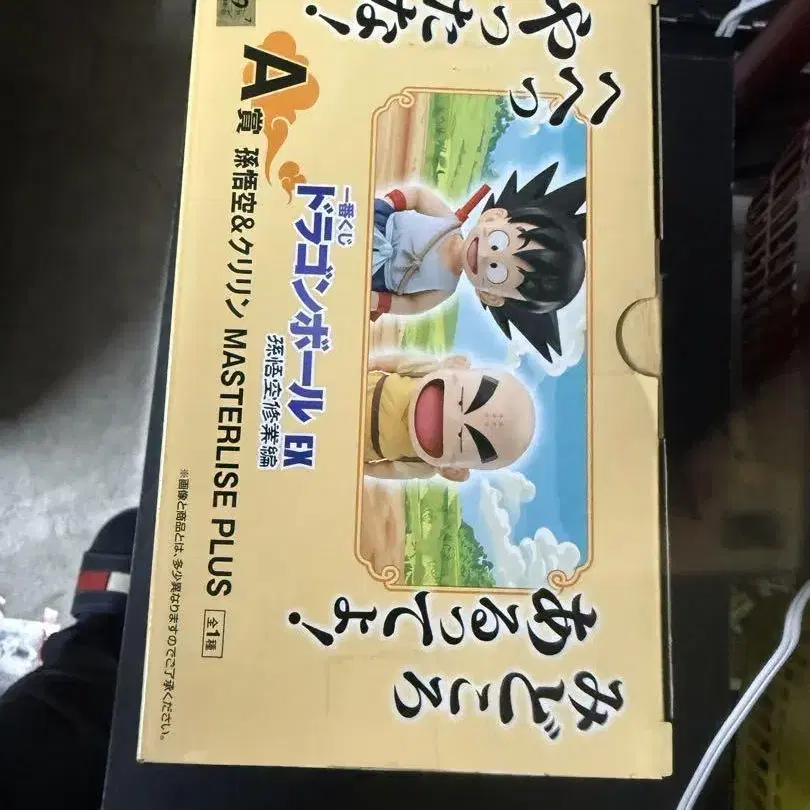 へへっ
やったな!
A賞 孫悟空&クリリン MASTERLISE PLUS 全1種
一番くじ
ドラゴンボール EX
孫悟空修業編
みどころ
あるってよ!
※画像と商品とは、多少異なりますのでご了承ください。